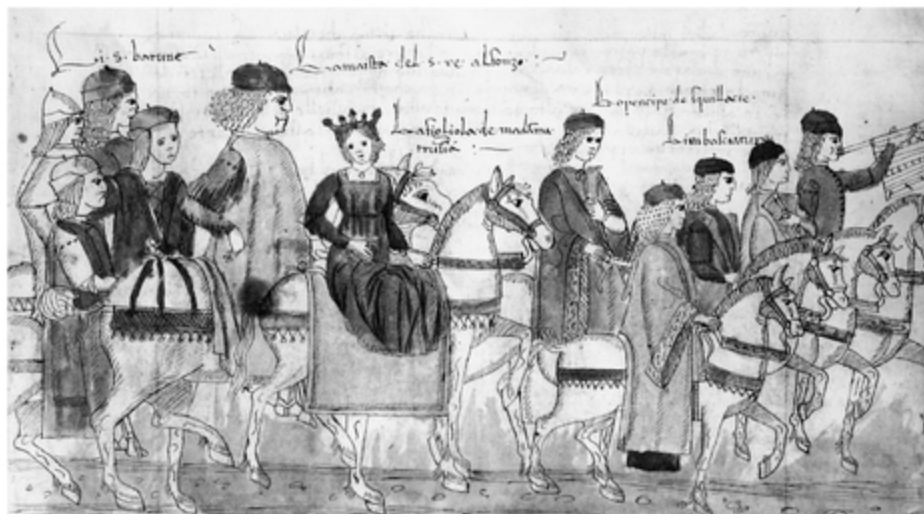 Li. S. barune
La maista del. s. re. alfonzo :~
La figliola de madama
Lo prencipe de squillacie.
Limbasciature